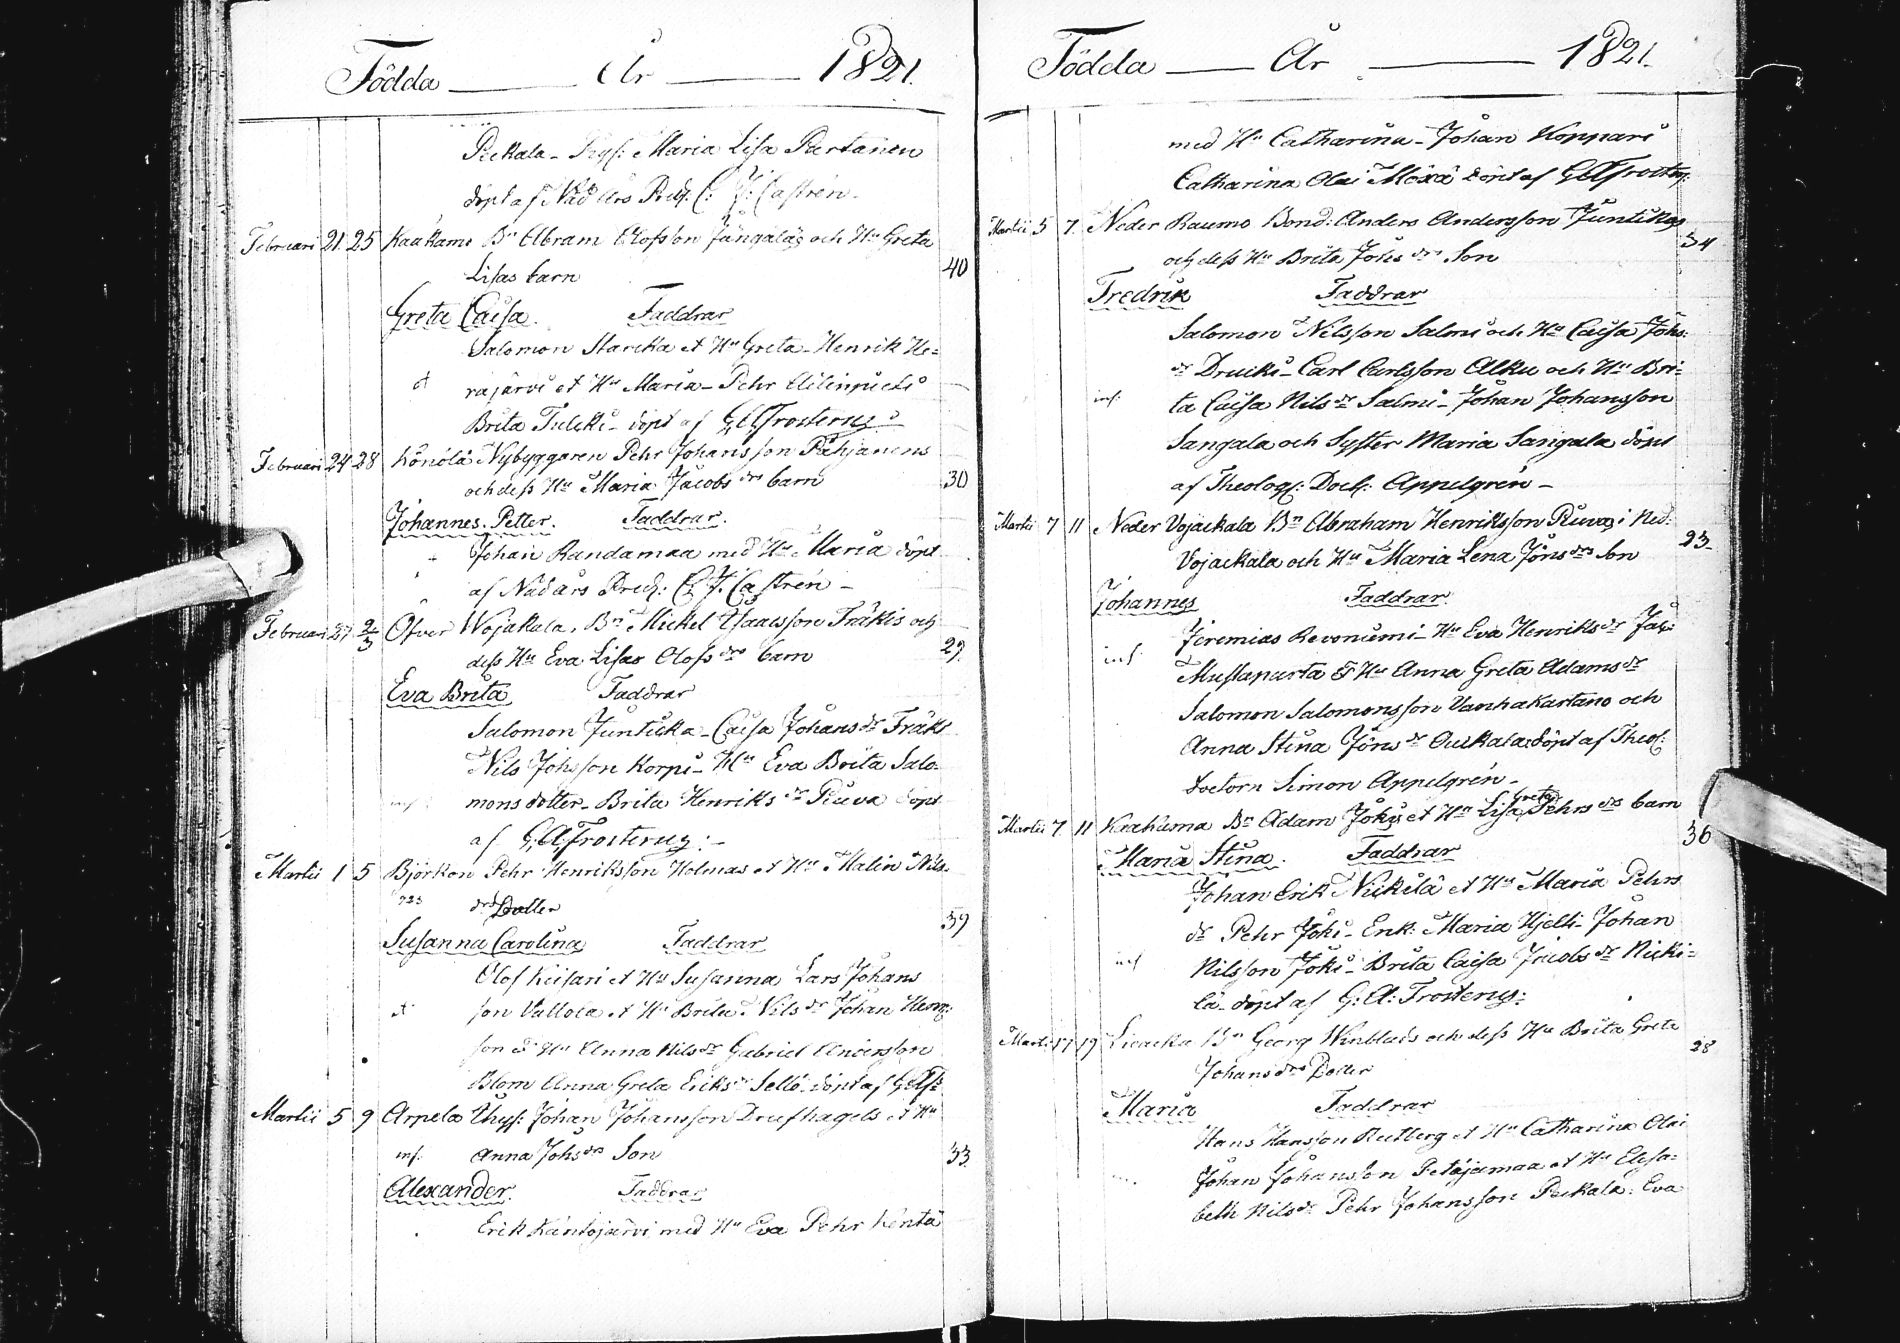 Födda — År — 1821.
Peckala - Maria Lisa Partanen
döpt af Nåd års Pred. C: J: Castrén.
Februari 21. 25 Kaakamo Bn Abram Olofsson Jängaläs och Hu Greta
Lisas barn 40
Greta Caisa. Faddrar
Salomon Starcka et Hu Greta - Henrik He-
rajärvi et Hu Maria - Pehr
Brita - döpt af G.A. Frosterus -
Februari 24 28 Könölä Nybyggaren Pehr Johansson Pähjanens
och dess Hu Maria Jacobs drs barn 30
Johannes Petter. Faddrar.
Johan Randamaa med Hu Maria döpt
af Nåd års Pred: C. J. Castrén -
Februari 27 2/3 Öfver Wojakala, Bn Mickel Isaacsson Träkis och
dess Hu Eva Lisas Olofs drs barn 29.
Eva Brita Faddrar
Salomon Junticka - Caisa Johans dr Träki
Nils Johsson Korpi - Hu Eva Brita Salo-
mons dotter - Brita Henriks dr Ruva döpt
af G.A. Frosterus: -
Martii 1 5 Björkön Pehr Henriksson Holmas et Hu Malin Nils-
drs Dotter 39
Susanna Carolina Faddrar
Olof Keisari et Hu Susanna Lars Johans
son et Hu Brita Nils dr Johan
son et Hu Anna Nils dr Gabriel Andersson
Blom Anna Greta Eriks dr döpt af
Martii 5 9 Arpela Johan Johansson Drufhagels et Hu
inf. Anna Johs drs Son 33
Alexander. Faddrar
Erik Käntöjärvi med Hu Eva Pehr Kentä
Födda — År — 1821.
med Hu Catharina - Johan Koppari
Catharina Olai döpt af
Martii 5 7 Neder Raumo Bond: Anders Andersson Juntikas
och dess Hu Brita Johs drs Son 34
Fredrik Faddrar
Salomon Nilsson Salmi och Hu Caisa Johs-
dr Drucki - Carl Carlsson Alku och Hu Bri-
inf. ta Caisa Nils dr Salmi - Johan Johansson
Sangala och Syster Maria Sangala döpt
af Theolog: Doct: Appelgrén -
Martii 7 11 Neder Vojackala Bn Abraham Henriksson Ruvas i Ned:
Vojackala och Hu Maria Lena Jöns drs Son 23
Johannes Faddrar.
Jeremias Revoniemi - Hu Eva Henriks dr
inf. Mustaparta et Hu Anna Greta Adams dr
Salomon Salomonsson Vanhakartano och
Anna Stina Jöns dr Ouckala döpt af Theol:
Doctorn Simon Appelgrén -
Martii 7 11 Kaakama Bn Adam Jokis et Hu Lisa Greta Pehrs drs barn 36
Maria Stina. Faddrar
Johan Erik Nickilä et Hu Maria Pehrs
dr Pehr Joki - Enk: Maria Hjelti - Johan
inf Nilsson Joki - Brita Caisa Jacobs dr Nicki-
lä döpt af G: A: Frosterus:
Martii 17 19 Liacka Bn Georg Winblads och dess Hu Brita Greta
Johans drs Doter 28
Maria Faddrar
Hans Hansson Rutberg et Hu Catharina Olai
Johan Johansson Petäjamaa et Hu Elisa-
beth Nils dr Pehr Johansson Peckala: Eva